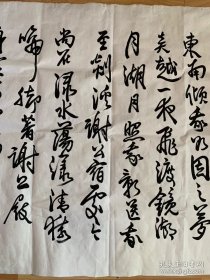 東南傾我欲因之夢
吳越一夜飛渡鏡湖
月湖月照我影送我
至剡溪謝公宿處今
尚在淥水蕩漾清猿
啼腳著謝公屐